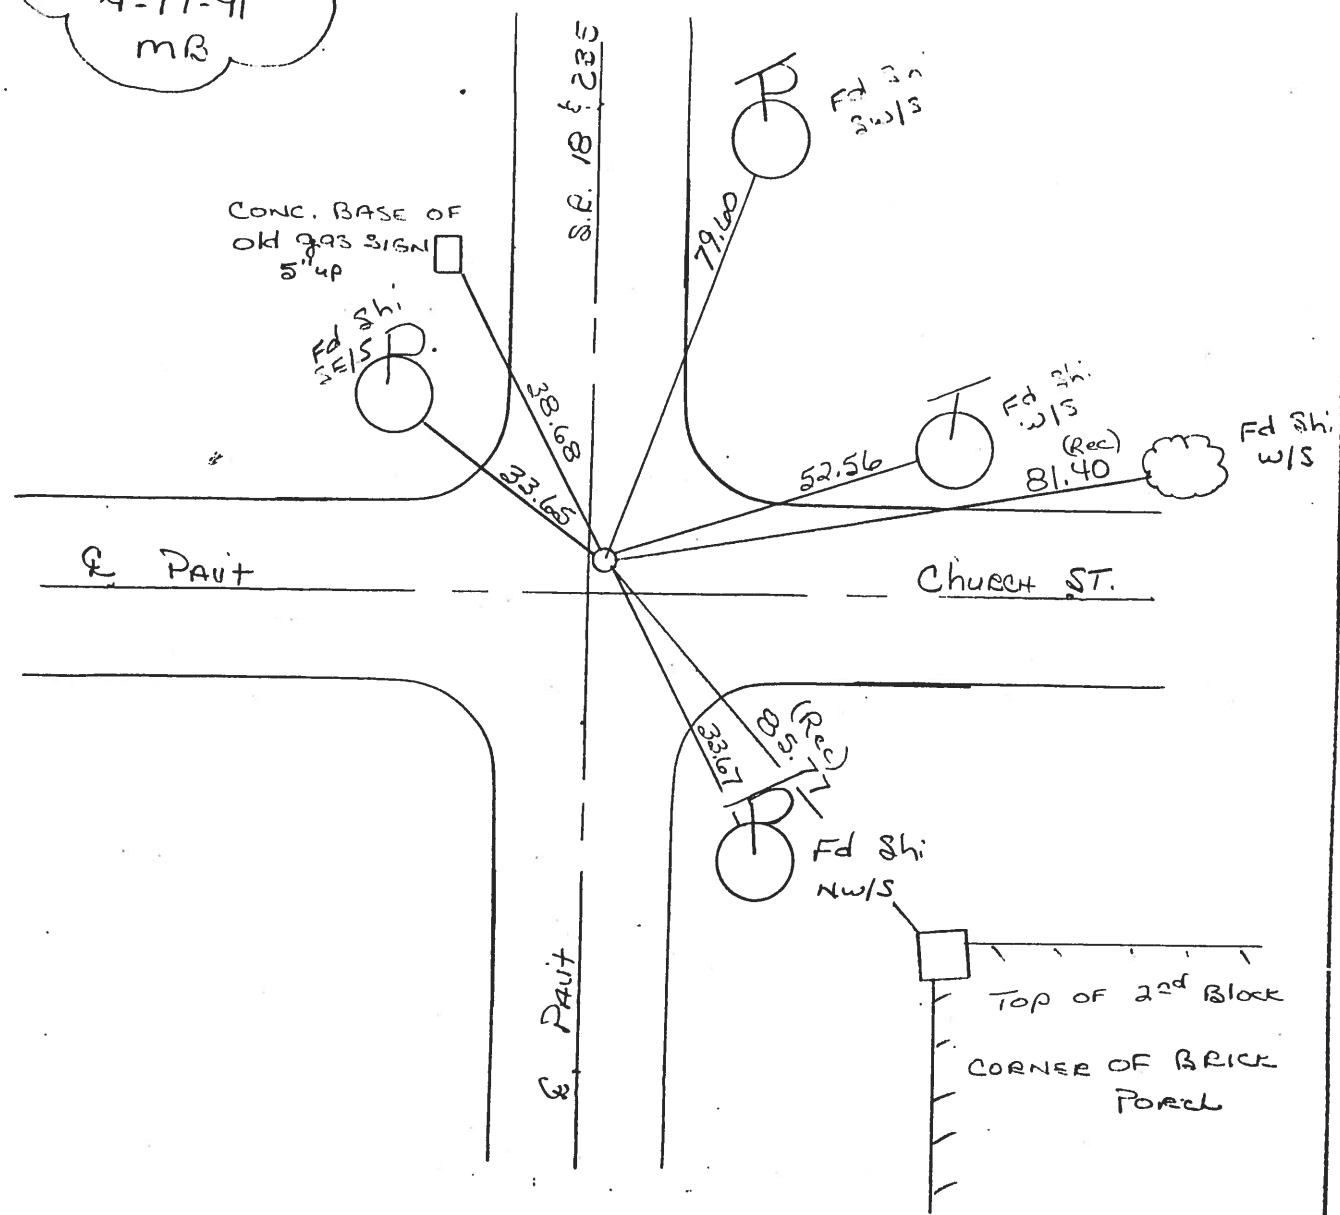 MB
S.R. 18 & 235
Fd
SW/S
79.60
CONC. BASE OF
Old gas SIGN
5" up
Fd Shi
SE/S
38.68
33.65
Fd Shi
W/S
52.56
(Rec)
81.40
Fd Shi
W/S
℄ PAVT
CHURCH ST.
33.67
85.77
(Rec)
Fd Shi
NW/S
TOP OF 2nd Block
CORNER OF BRICK
PORCH
℄ PAVT